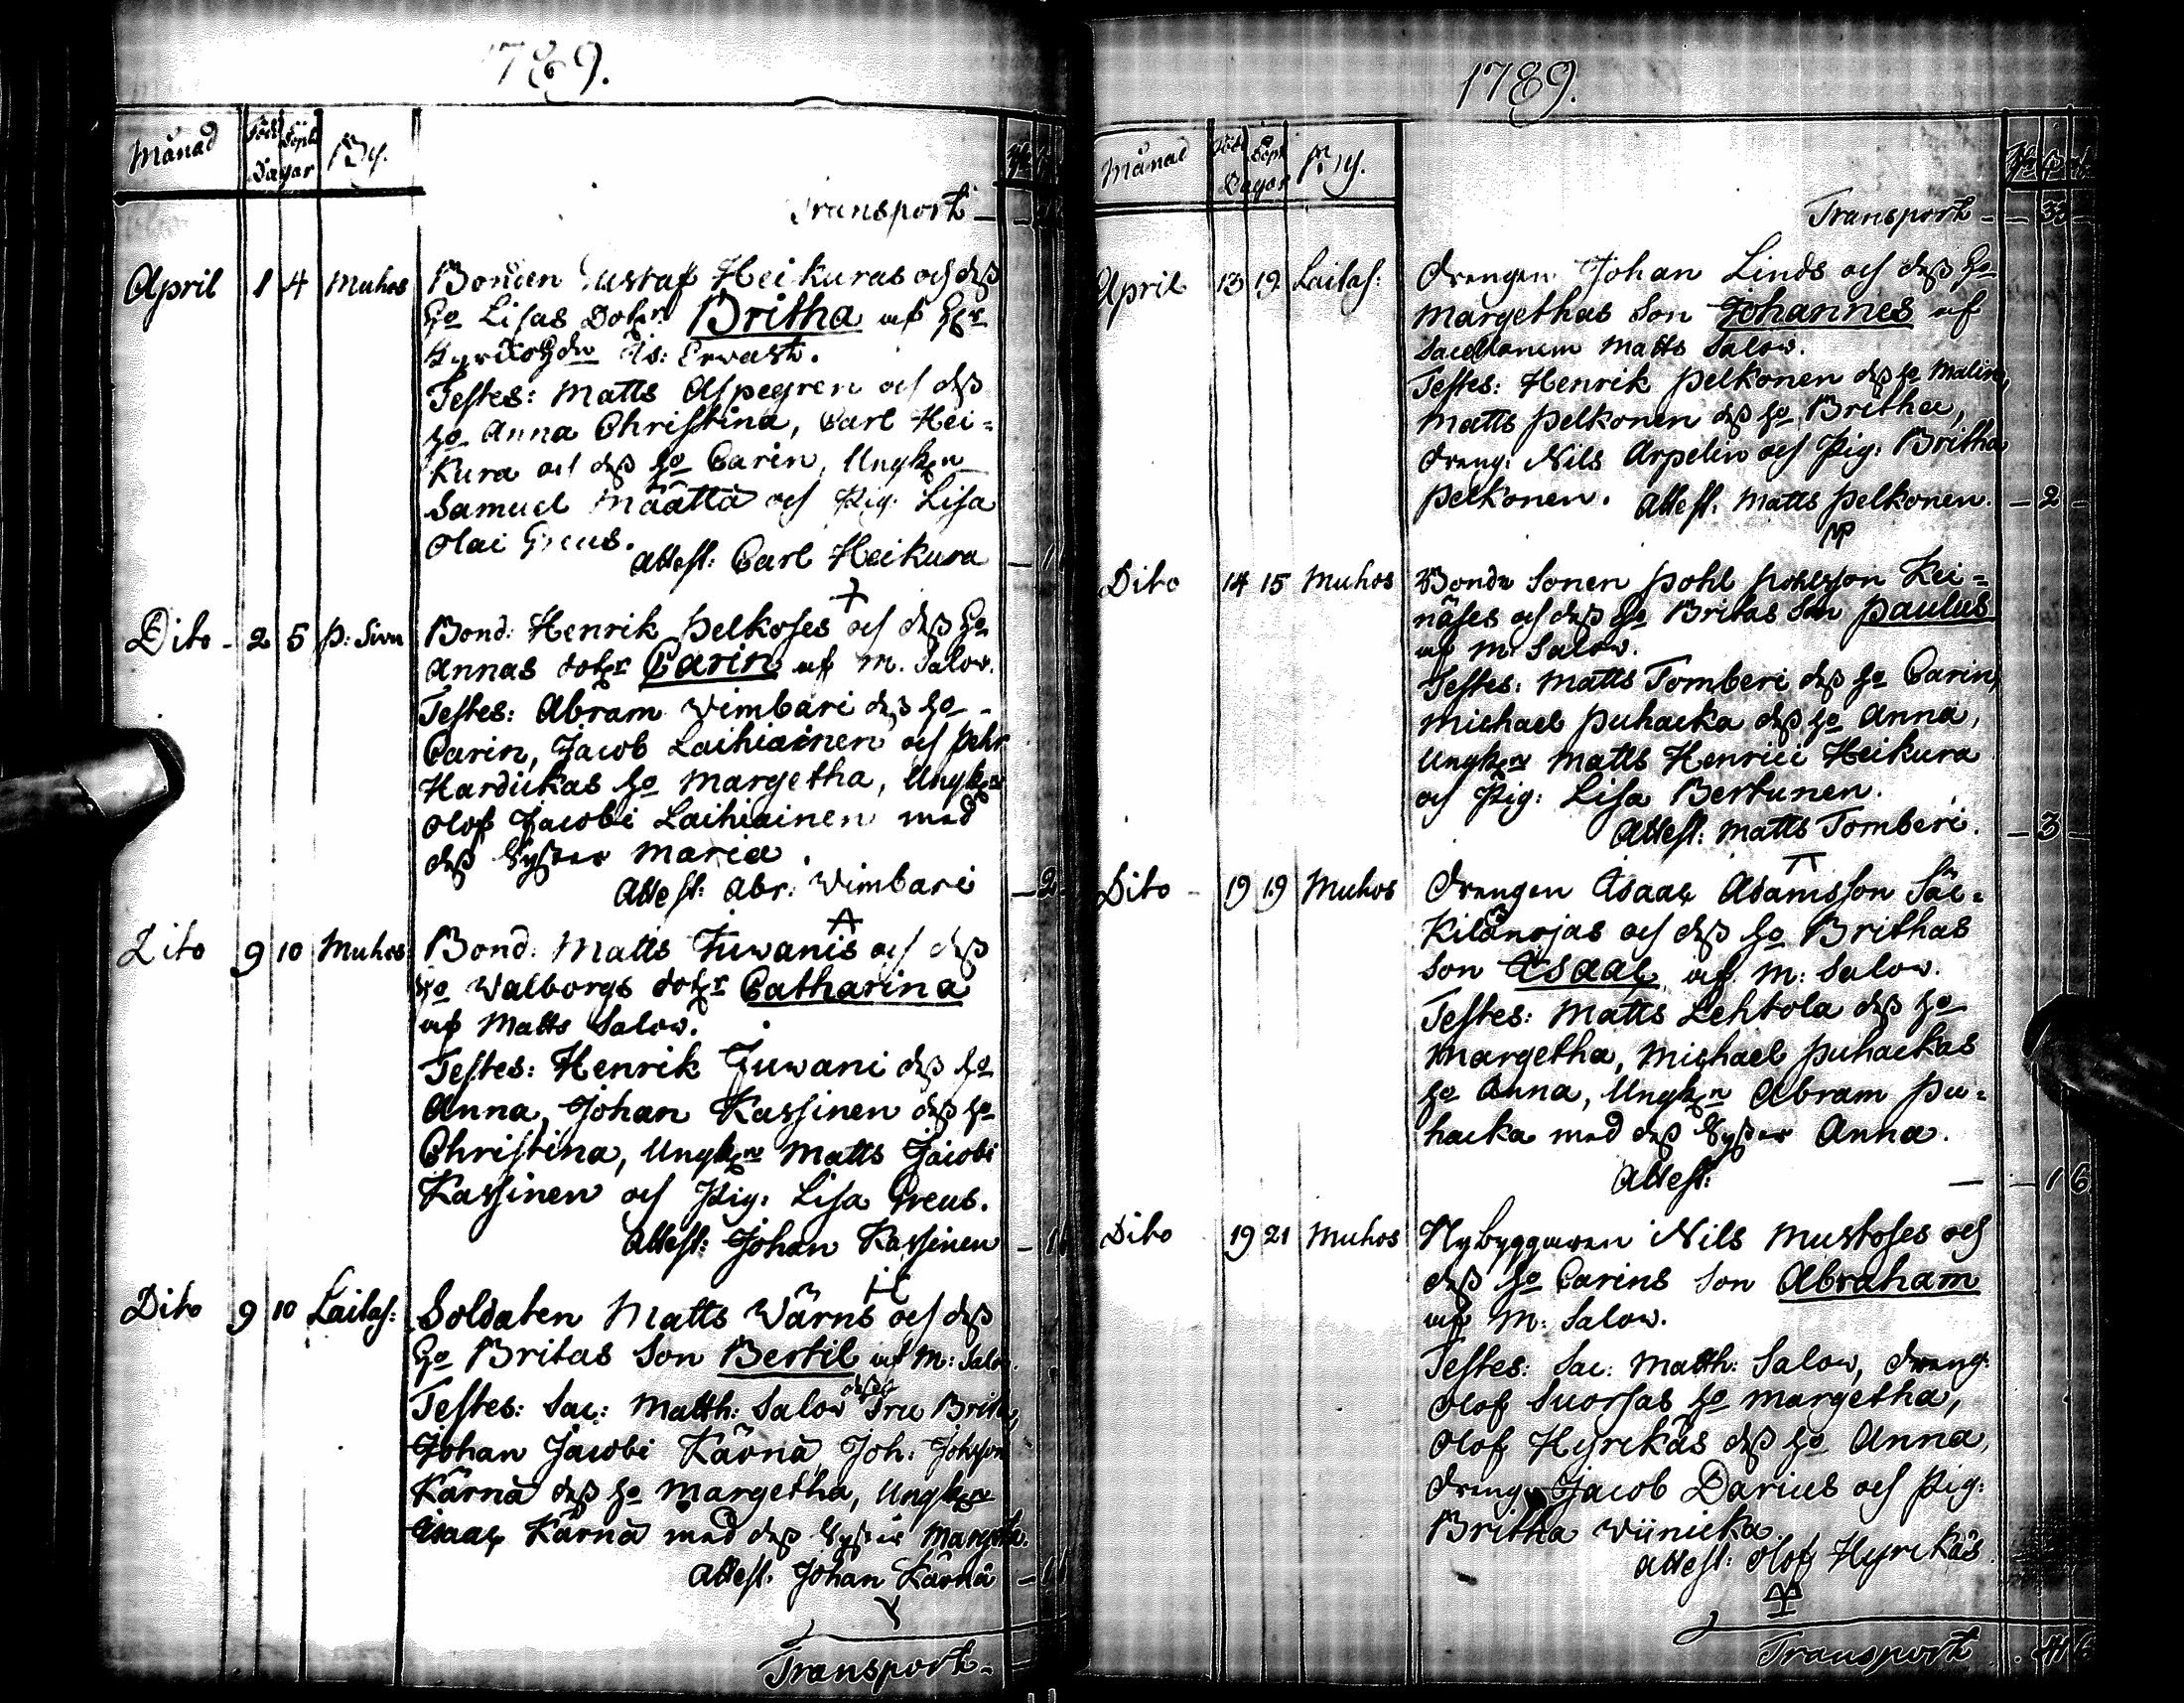 1789.
Månad Född Döpt Dagar By.
Transport
April 1 4 Muhos Bonden Gustaf Heikuras och deß
ho Lisas Doter Britha af Her
Kyrkioh: Is: Ervast.
Testes: Matts Aspegren och deß
ho Anna Christina, Carl Hei=
kura och deß ho Carin, Ungk:n
Samuel Määttä och Pig: Lisa
Olai Greus.
Attest: Carl Heikura
Dito - 2 5 P: Sivu Bond: Henrik Pelkoses och deß ho
Annas doter Carin af M. Salow.
Testes: Abram Wimbari deß ho
Carin, Jacob Laihiainen och Pehr
Hardickas ho Margetha, Ungk:n
Olof Jacobi Laihiainen med
deß Syster Maria.
Attest: Abr: Wimbari - 2
Dito 9 10 Muhos Bond: Matts Juwanis och deß
ho Walborgs doter Catharina
af Matts Salow.
Testes: Henrik Juwani deß ho
Anna, Johan Kassinen deß ho
Christina, Ungk:n Matts Jacobi
Kassinen och Pig: Lisa Greus.
Attest: Johan Kassinen
Dito 9 10 Laitas: Soldaten Matts Wärns och deß
ho Britas Son Bertil af M: Salow.
Testes: Sac: Matth: Salow deß Fru Britha,
Johan Jacobi Kärnä, Joh: Johsson
Kärnä deß ho Margetha, Ungk:n
Isaac Kärnä med deß Syster Margetha.
Attest: Johan Kärnä
Transport -
1789.
Månad Född Döpt Dagar By.
Transport - - 33 -
April 13 19 Laitas: Drengen Johan Linds och deß ho
Margethas Son Johannes af
Sacellanem Matts Salow.
Testes: Henrik Pelkonen deß ho Malin,
Matts Pelkonen deß ho Britha,
Dreng: Nils Arpelin och Pig: Britha
Pelkonen. Attest: Matts Pelkonen. - 2 -
Dito 14 15 Muhos Bonde Sonen Pohl Pohlsson Kei=
näses och deß ho Britas Son Paulus
af M: Salow.
Testes: Matts Tomberi deß ho Carin,
Michael Puhacka deß ho Anna,
Ungk:n Matts Henrici Heikura
och Pig: Lisa Bertunen.
Attest: Matts Tomberi. - 3 -
Dito - 19 19 Muhos Drengen Isaac Adamsson Säc=
kilänojas och deß ho Brithas
Son Isaac af M: Salow.
Testes: Matts Lehtola deß ho
Margetha, Michael Puhackas
ho Anna, Ungk:n Abram Pu=
hacka med deß Syster Anna.
Attest: - - 1 6
Dito 19 21 Muhos Nybyggaren Nils Mustoses och
deß ho Carins Son Abraham
af M: Salow.
Testes: Sac: Matth: Salow, Dreng:
Olof Suorsas ho Margetha,
Olof Hyrckäs deß ho Anna,
Dreng: Jacob Darius och Pig:
Britha Wiinicka.
Attest: Olof Hyrckäs
Transport